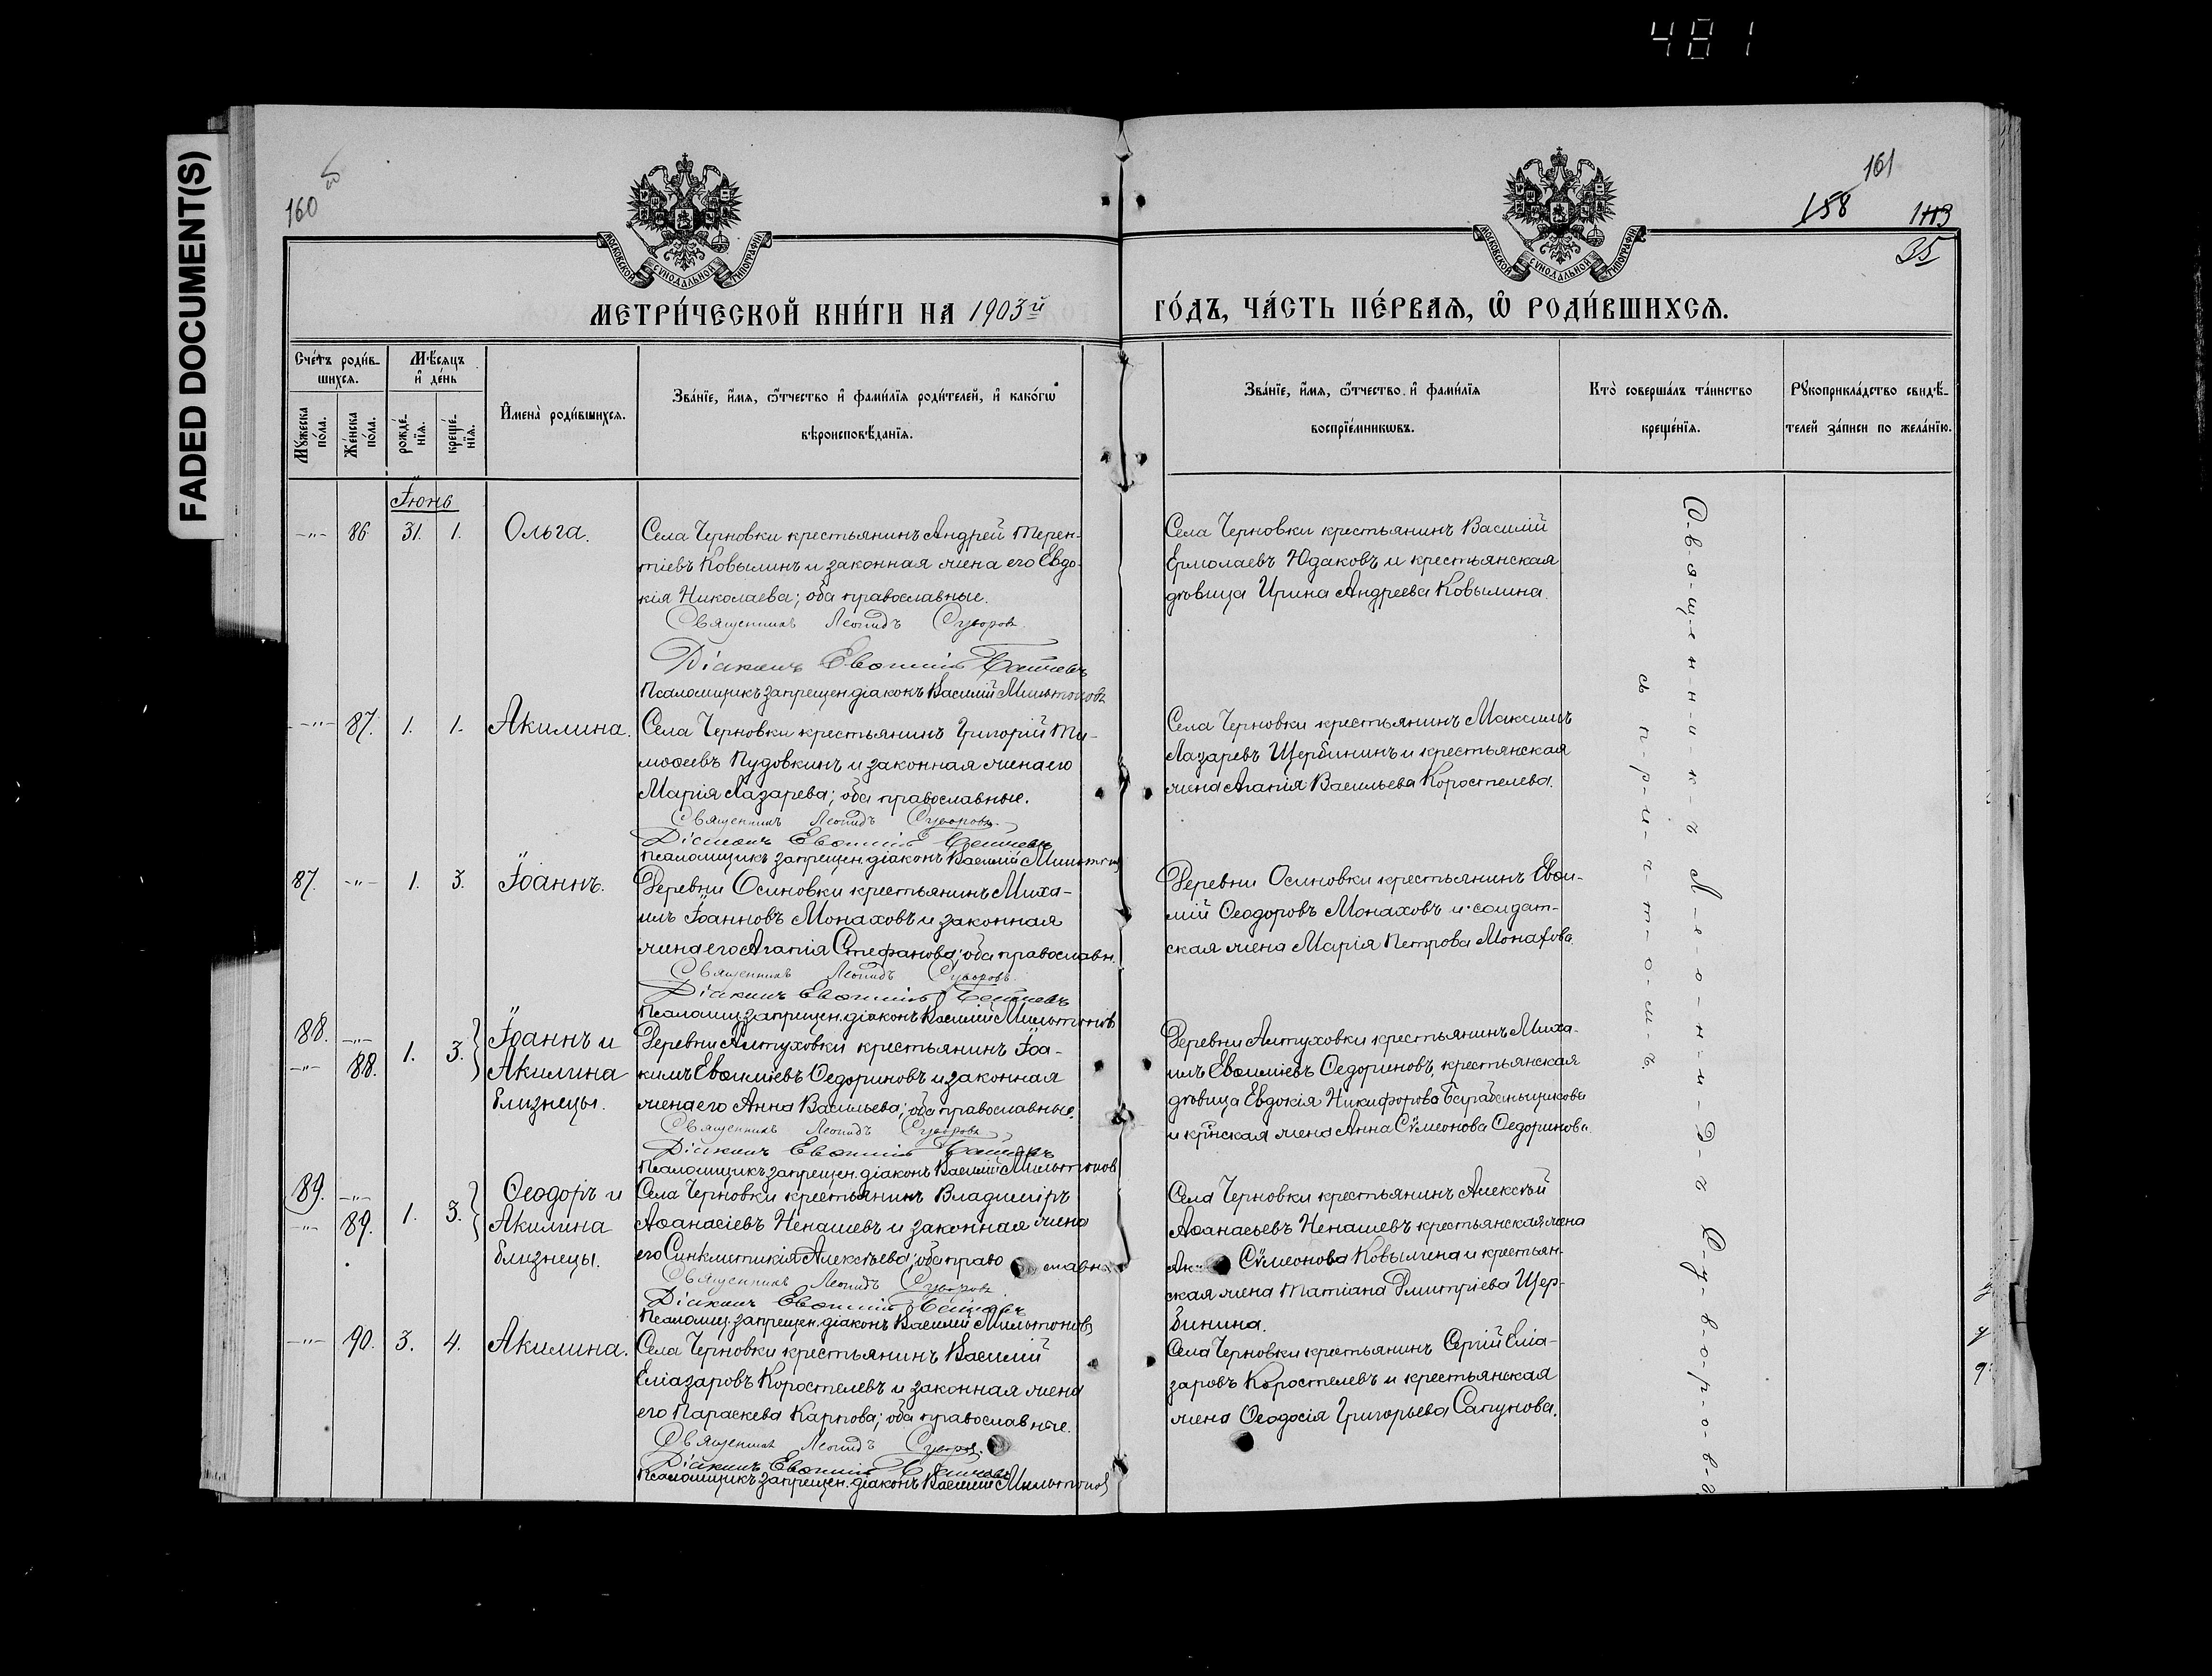 481
FADED DOCUMENT(S)
160
161
158
113
35
МОСКОВСКОЙ СѴНОДАЛЬНОЙ ТИПОГРАФІИ
МОСКОВСКОЙ СѴНОДАЛЬНОЙ ТИПОГРАФІИ
МЕТРИ́ЧЕСКОЙ КНИ́ГИ НА 1903й
ГО́ДЪ, ЧА́СТЬ ПЕ́РВАѦ, Ѡ҆ РОДИ́ВШИХСѦ.
Сче́тъ роди́в-
шихся.
Мѣ́сяцъ
и҆ де́нь
Мꙋ́жеска по́ла.
Же́нска по́ла.
рожде́-
нїя.
креще́-
нїя.
И҆мена̀ роди́вшихся.
Зва́нїе, и҆́мя, ѻ҆́тчество и҆ фами́лїя роди́телей, и҆ како́гѡ
вѣроисповѣ́данїя.
Зва́нїе, и҆́мя, ѻ҆́тчество и҆ фами́лїя
воспрїе́мникѡвъ.
Кто̀ соверша́лъ та́инство
креще́нїя.
Рꙋкоприкла́дство свидѣ́-
телей за́писи по жела́нїю.
Іюнь
-"- 86 31. 1. Ольга.
Села Черновки крестьянинъ Андрей Терен-
тіевъ Ковылинъ и законная жена его Евдо-
кія Николаева; оба православные.
Священникъ Леонидъ Суворовъ
Діаконъ Евѳимій
Псаломщикъ запрещен. діаконъ Василій Мильтоновъ
Села Черновки крестьянинъ Василій
Ермолаевъ Юдаковъ и крестьянская
дѣвица Ирина Андреева Ковылина.
-"- 87. 1. 1. Акилина.
Села Черновки крестьянинъ Григорій Ти-
моѳеевъ Пудовкинъ и законная жена его
Марія Лазарева; оба православные.
Священникъ Леонидъ Суворовъ
Діаконъ Евѳимій
Псаломщикъ запрещен. діаконъ Василій Мильтонов
Села Черновки крестьянинъ Максимъ
Лазаревъ Щербининъ и крестьянская
жена Агапія Васильева Коростелева.
87. -"- 1. 3. Іоаннъ.
Деревни Осиновки крестьянинъ Миха-
илъ Іоанновъ Монаховъ и законная
жена его Агапія Стефанова; оба православн.
Священникъ Леонидъ Суворовъ
Діаконъ Евѳимій
Псаломщ. запрещен. діаконъ Василій Мильтоновъ
Деревни Осиновки крестьянинъ Евѳи-
мій Ѳеодоровъ Монаховъ и солдат-
ская жена Марія Петрова Монахова.
88. -"-
-"- 88. 1. 3. Іоаннъ и
Акилина
близнецы.
Деревни Алтуховки крестьянинъ Іоа-
кимъ Евѳиміевъ Ѳедориновъ и законная
жена его Анна Васильева; оба православные.
Священникъ Леонидъ Суворовъ
Діаконъ Евѳимій
Псаломщикъ запрещен. діаконъ Василій Мильтонов
Деревни Алтуховки крестьянинъ Миха-
илъ Евѳиміевъ Ѳедориновъ, крестьянская
дѣвица Евдокія Никифорова Барабанщикова
и кр҃нская жена Анна Сѵмеонова Ѳедоринова.
89. -"-
-"- 89. 1. 3. Ѳеодоръ и
Акилина
близнецы.
Села Черновки крестьянинъ Владиміръ
Аѳанасіевъ Ненашевъ и законная жена
его Синклитикія Алексѣева; оба православн.
Священникъ Леонидъ Суворовъ
Діаконъ Евѳимій
Псаломщ. запрещен. діаконъ Василій Мильтоновъ
Села Черновки крестьянинъ Алексѣй
Аѳанасьевъ Ненашевъ крестьянская жена
Сѵмеонова Ковылина и крестьян-
ская жена Татіана Димитріева Щер-
бинина.
-"- 90. 3. 4. Акилина.
Села Черновки крестьянинъ Василій
Еліазаровъ Коростелевъ и законная жена
его Параскева Карпова; оба православные.
Священникъ Леонидъ Суворов
Діаконъ Евѳимій
Псаломщикъ запрещен. діаконъ Василій Мильтонов
Села Черновки крестьянинъ Сергій Еліа-
заровъ Коростелевъ и крестьянская
жена Ѳеодосія Григорьева Сапунова.
С-в-я-щ-е-н-н-и-к-ъ Л-е-о-н-и-д-ъ С-у-в-о-р-о-в-ъ
съ п-р-и-ч-т-о-м-ъ.